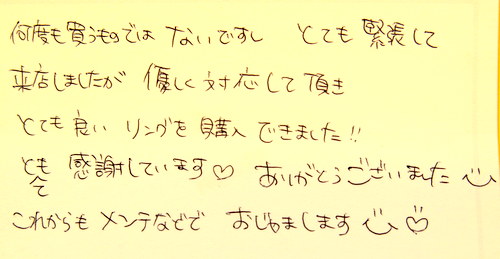 何度も買うものではないですし とても緊張して
来店しましたが 優しく対応して頂き
とても良い リングを購入できました!!
とても感謝しています♡ ありがとうございました
これからも メンテなどで おじゃまします ♡